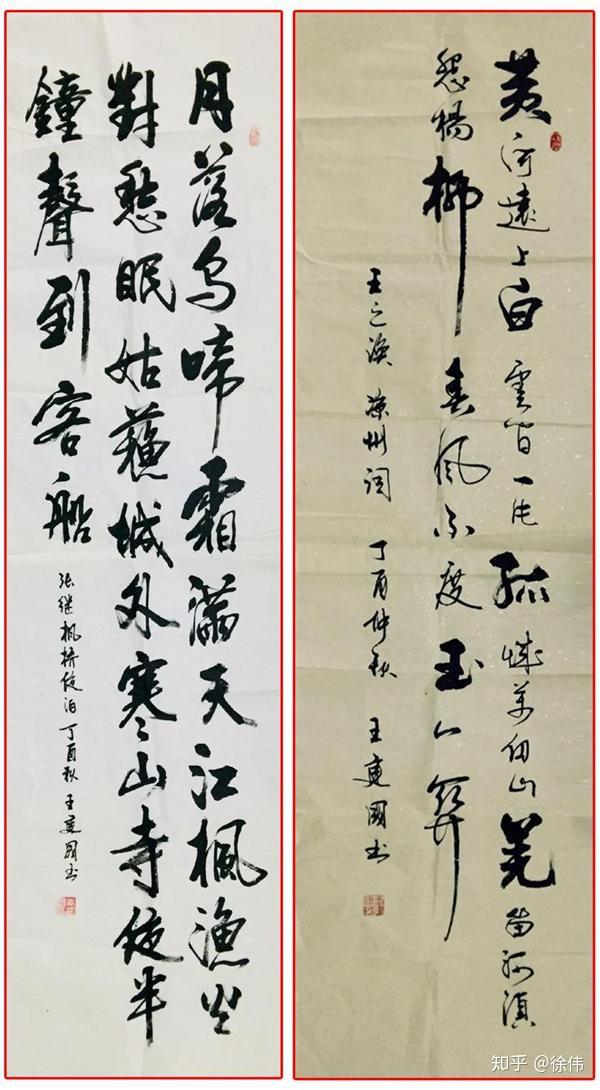 月落烏啼霜滿天江楓漁火
對愁眠姑蘇城外寒山寺夜半
鐘聲到客船
张继枫桥夜泊丁酉秋王建國书
黄河遠上白雲间一片孤城萬仞山羌笛何須
怨楊柳春風不度玉门関
王之渙 涼州词 丁酉仲秋 王建國书
知乎 @徐伟